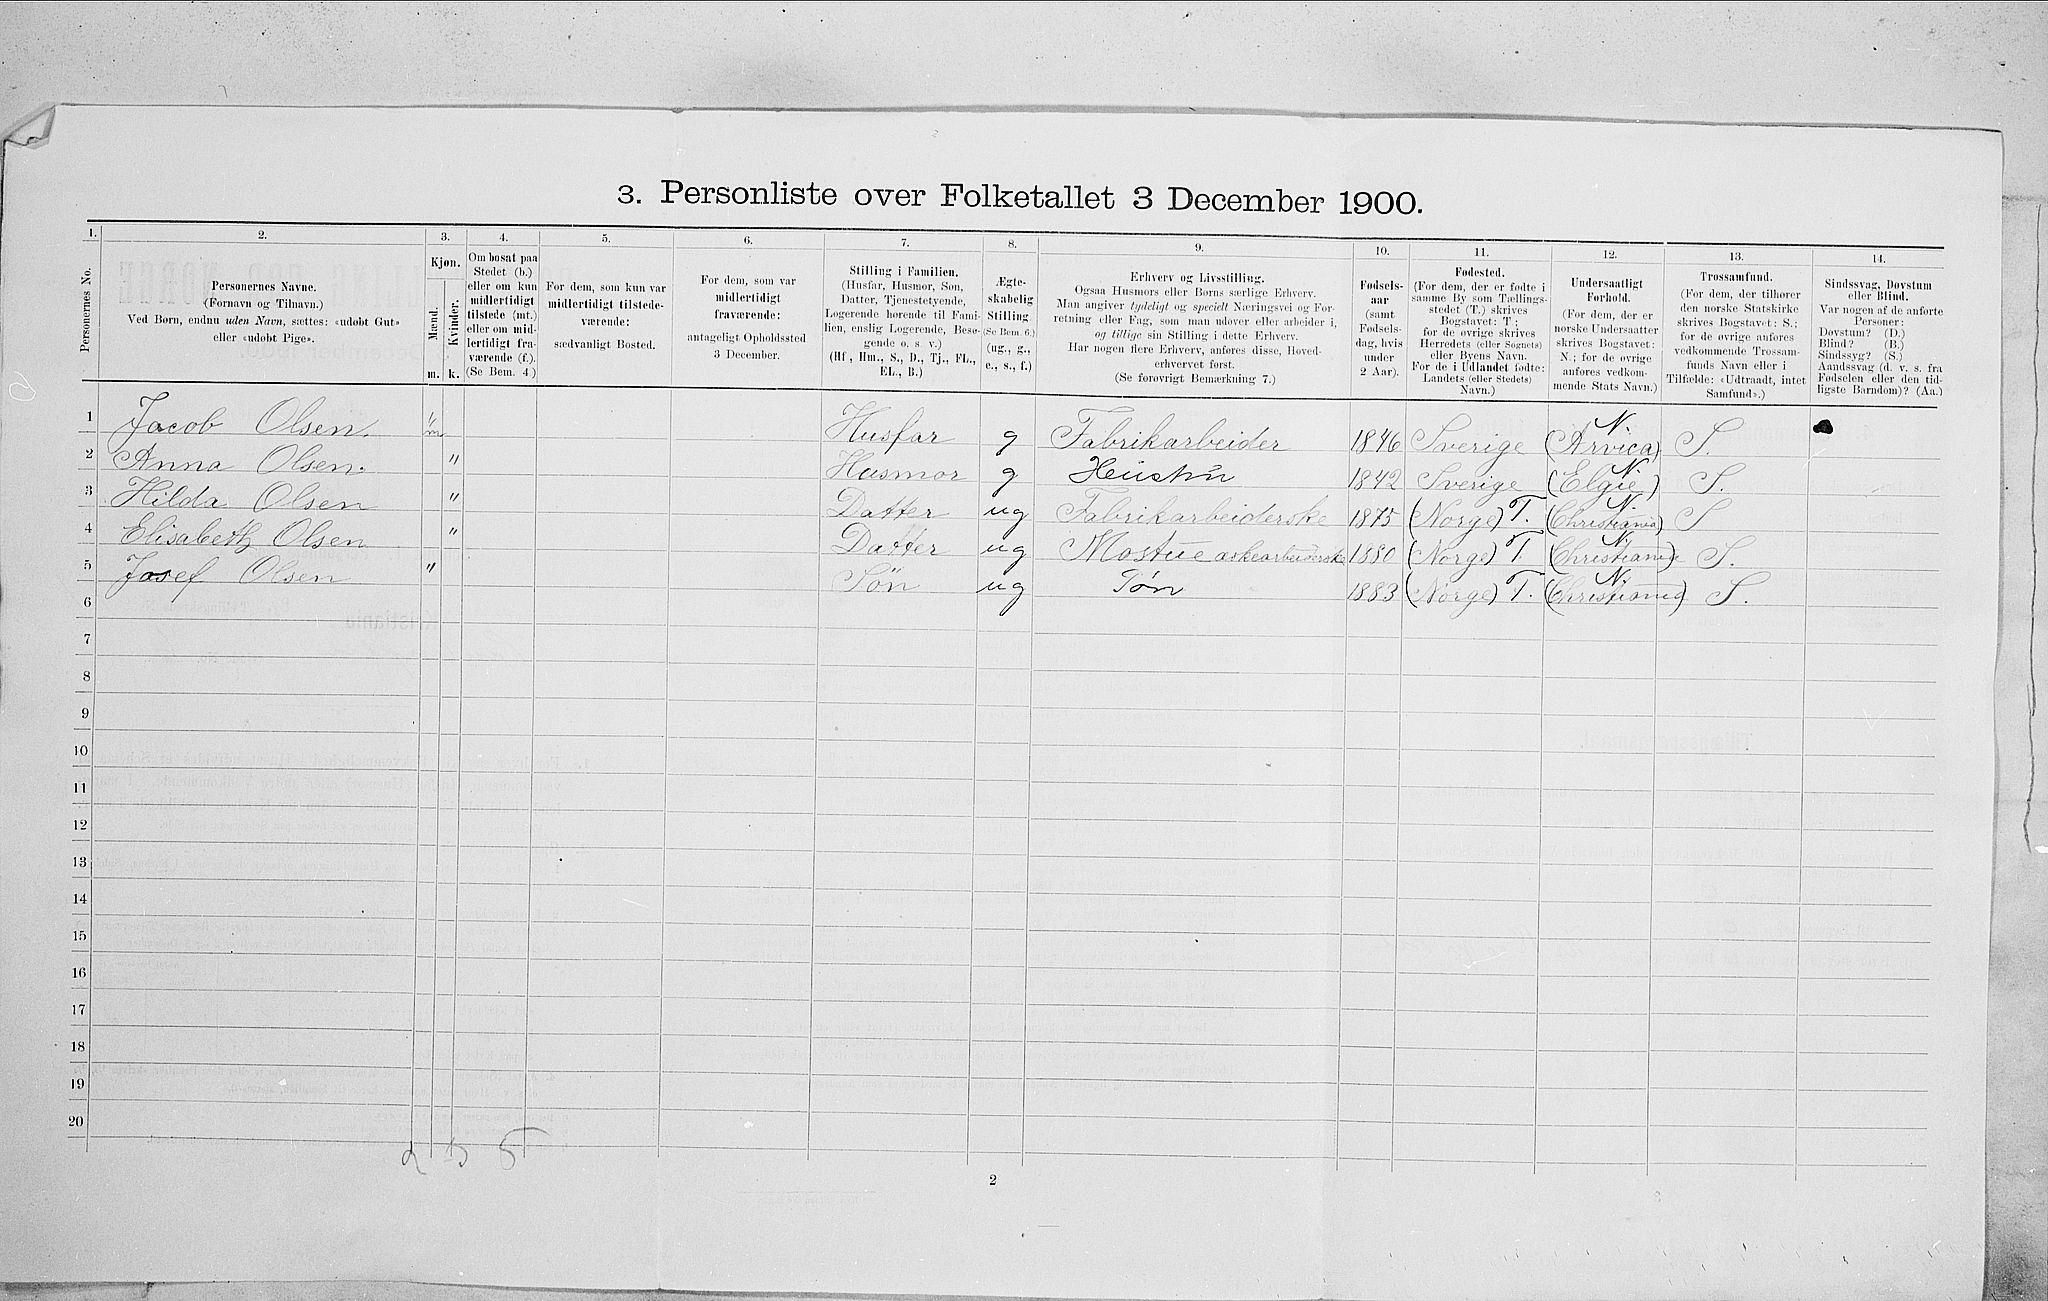 3. Personliste over Folketallet 3 December 1900.
1. 2. 3. 4. 5. 6. 7. 8. 9. 10. 11. 12. 13. 14.
Personernes No.
Personernes Navne.
(Fornavn og Tilnavn.)
Ved Børn, endnu uden Navn, sættes: «udobt Gut»
eller «udobt Pige».
Kjøn.
Mænd.
Kvinder.
m. k.
Om bosat paa
Stedet (b.)
eller om kun
midlertidigt
tilstede (mt.)
eller om mid-
lertidigt fra-
værende (f.).
(Se Bem. 4.)
For dem, som kun var
midlertidigt tilstede-
værende:
sædvanligt Bosted.
For dem, som var
midlertidigt
fraværende:
antageligt Opholdssted
3 December.
Stilling i Familien.
(Husfar, Husmor, Søn,
Datter, Tjenestetyende,
Logerende hørende til Fami-
lien, enslig Logerende, Besø-
gende o. s. v.)
(Hf., Hm., S., D., Tj., FL.,
EL., B.)
Ægte-
skabelig
Stilling.
(Se Bem. 6.)
(ug., g.,
e., s., f.)
Erhverv og Livsstilling.
Ogsaa Husmors eller Børns særlige Erhverv.
Man angiver tydeligt og specielt Næringsvei og For-
retning eller Fag, som man udøver eller arbeider i,
og tillige sin Stilling i dette Erhverv.
Har nogen flere Erhverv, anføres disse, Hoved-
erhvervet først.
(Se forøvrigt Bemærkning 7.)
Fødsels-
aar
(samt
Fødsels-
dag, hvis
under
2 Aar).
Fødested.
(For dem, der er fødte i
samme By som Tællings-
stedet (T.) skrives
Bogstavet: T.;
for de øvrige skrives
Herredets (eller Sognets)
eller Byens Navn.
For de i Udlandet fødte:
Landets (eller Stedets)
Navn.)
Undersaatligt
Forhold.
(For dem, der er
norske Undersaatter
skrives Bogstavet:
N.; for de øvrige
anføres vedkom-
mende Stats Navn.)
Trossamfund.
(For dem, der tilhører
den norske Statskirke
skrives Bogstavet: S.;
for de øvrige anføres
vedkommende Trossam-
funds Navn eller i
Tilfælde: «Udtraadt, intet
Samfund».)
Sindssvag, Døvstum
eller Blind.
Var nogen af de anførte
Personer:
Døvstum? (D.)
Blind? (B.)
Sindssyg? (S.)
Aandssvag (d. v. s. fra
Fødselen eller den tid-
ligste Barndom)? (Aa.)
1 Jacob Olsen. " m Husfar g Fabrikarbeider 1846 Sverige (Arvica) N. S.
2 Anna Olsen. " Husmor g Hustru 1842 Sverige (Elgie) N. S.
3 Hilda Olsen " Datter ug Fabrikarbeiderske 1875 (Norge) T. (Christiania) N. S
4 Elisabeth Olsen " Datter ug askearbeiderske 1880 (Norge) T. (Christiania) N. S.
5 Josef Olsen " Søn ug Søn 1883 (Norge) T. (Christiania) N. S.
6
7
8
9
10
11
12
13
14
15
16
17
18
19
20
2 3 5
2